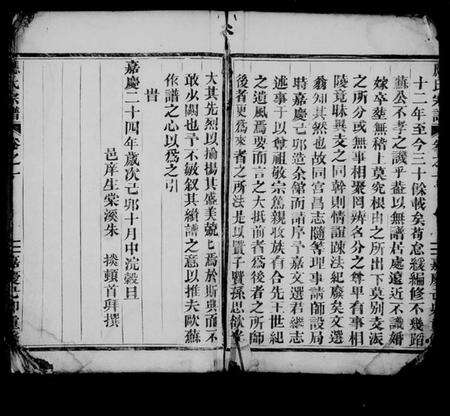 十二年至今三十餘載矣苟怠緩編修不幾蹈
蘇公不孝之譏乎蓋以無譜君處遠近不識婚
嫁卒塟無稽上莫究根由之所出下莫別支派
之所分或無事相聚罔辨名分之尊卑有事相
陵竟昧與支之同幹則情誼疎法紀廢矣文選
翁知其然也故同宮昌志隨等理事請師設局
時嘉慶己卯造余館而請序予嘉文選君繼志
述事于以尊祖敬宗篤親收族有合先王世紀
之遺風焉要而言之大抵前者爲後者之所師
後者更爲來者之所法是以置予賢孫思欲
大其先烈以揄揚其盛美兢兢爲於斯與而不
敢少闕也予不敏叙其繼譜之意以推夫歐蘇
作譜之心以爲之引
昔
嘉慶二十四年歲次己卯十月中浣穀旦
邑庠生棠溪朱 掞頓首拜撰
氏宗譜 卷之一